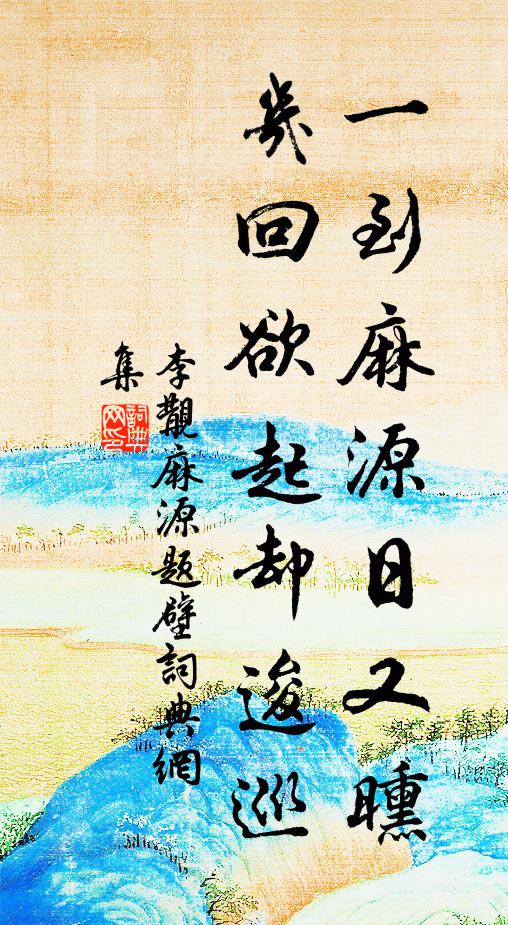 一到麻源日又曛
幾回欲起却逡巡
李覯麻源題壁詞典網
集
詞典網印